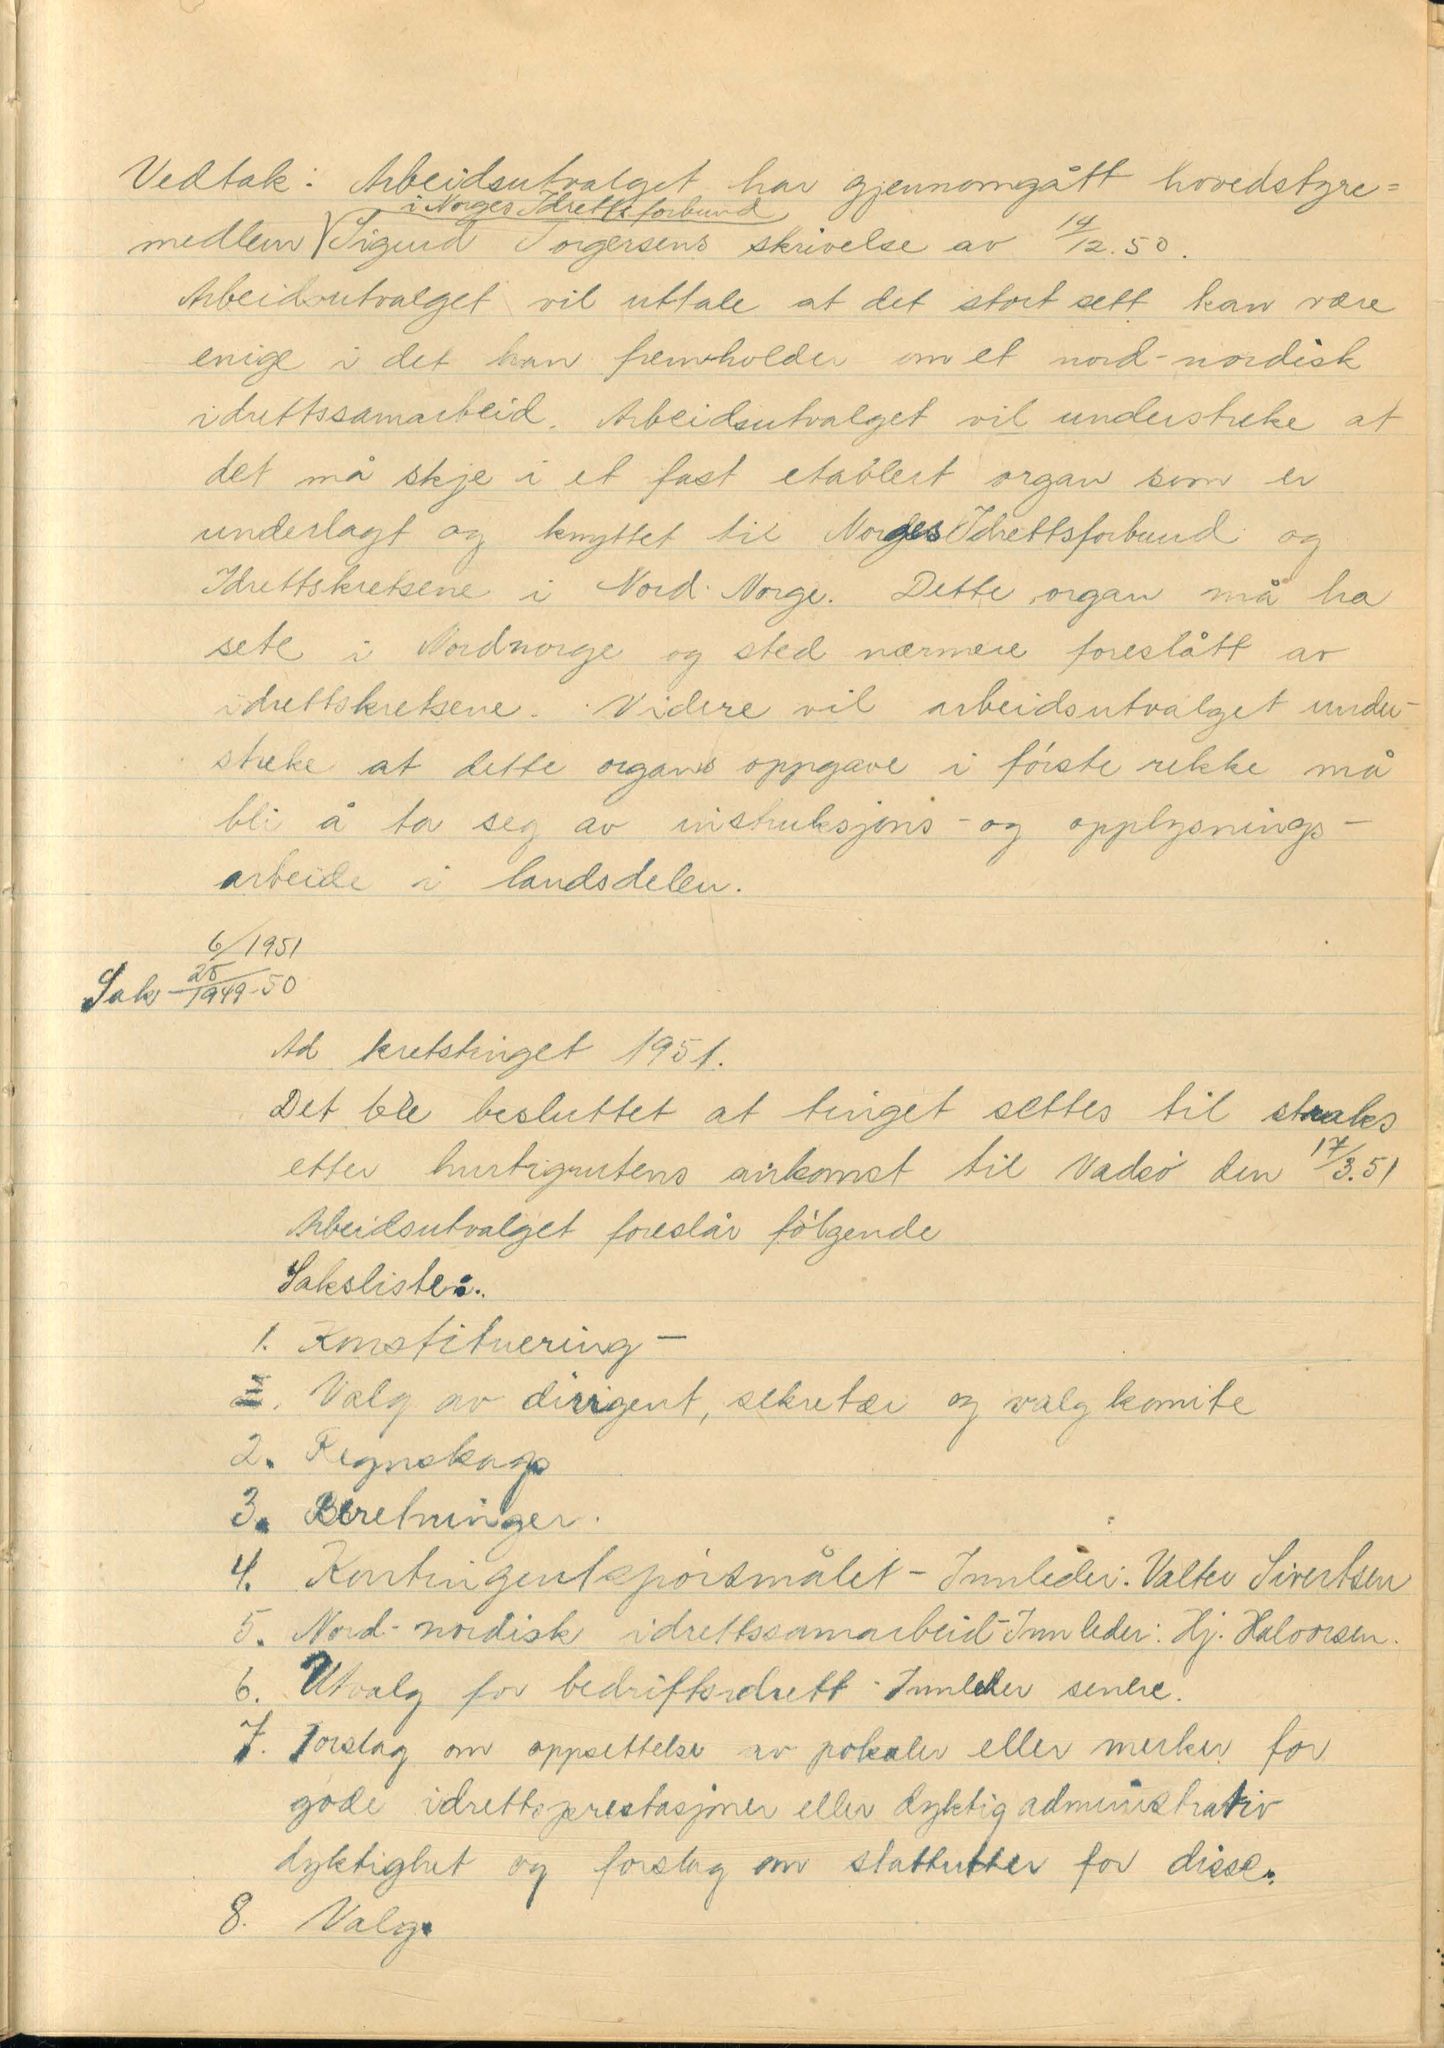 Vedtak: Arbeidsutvalget har gjennomgått hovedstyre=
i Norges Idrettsforbund
medlem Sigurd Torgersens skrivelse av 14/12.50.
Arbeidsutvalget vil uttale at det stort sett kan være
enige i det han fremholder om et nord-nordisk
idrettssamarbeid. Arbeidsutvalget vil understreke at
det må skje i et fast etablert organ som er
underlagt og knyttet til Norges Idrettsforbund og
Idrettskretsene i Nord-Norge. Dette organ må ha
sete i Nordnorge og sted nærmere foreslått av
idrettskretsene. Videre vil arbeidsutvalget under-
streke at dette organs oppgave i første rekke må
bli å ta seg av instruksjons- og opplysnings-
arbeide i landsdelen.
6/1951
Sak 25/1949-50
Ad kretstinget 1951.
Det ble besluttet at tinget settes til straks
etter hurtigrutens ankomst til Vadsø den 17/3.51
Arbeidsutvalget foreslår følgende
Saksliste:
1. Konstituering-
Valg av dirigent, sekretær og valgkomite
2. Regnskap
3. Beretninger.
4. Kontingentspørsmålet - Innleder: Valter Sivertsen
5. Nord-nordisk idrettssamarbeid - Innleder: Hj. Halvorsen.
6. Utvalg for bedriftsidrett - Innleder senere.
7. Forslag om oppsettelse av pokaler eller merker for
gode idrettsprestasjoner eller dyktig administrativ
dyktighet og forslag om stattutter for disse.
8. Valg.